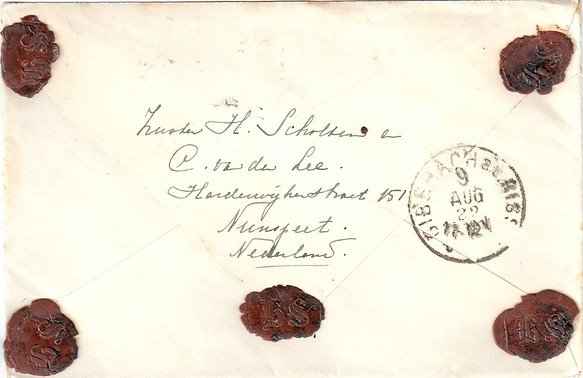 Zuster H. Scholten en
C. van der Lee.
Harderwijkerstraat 151
Nunspeet.
Nederland.
BIBERACH a. RISS
9
AUG
22
11-12 V
HS
HS
HS
HS
HS